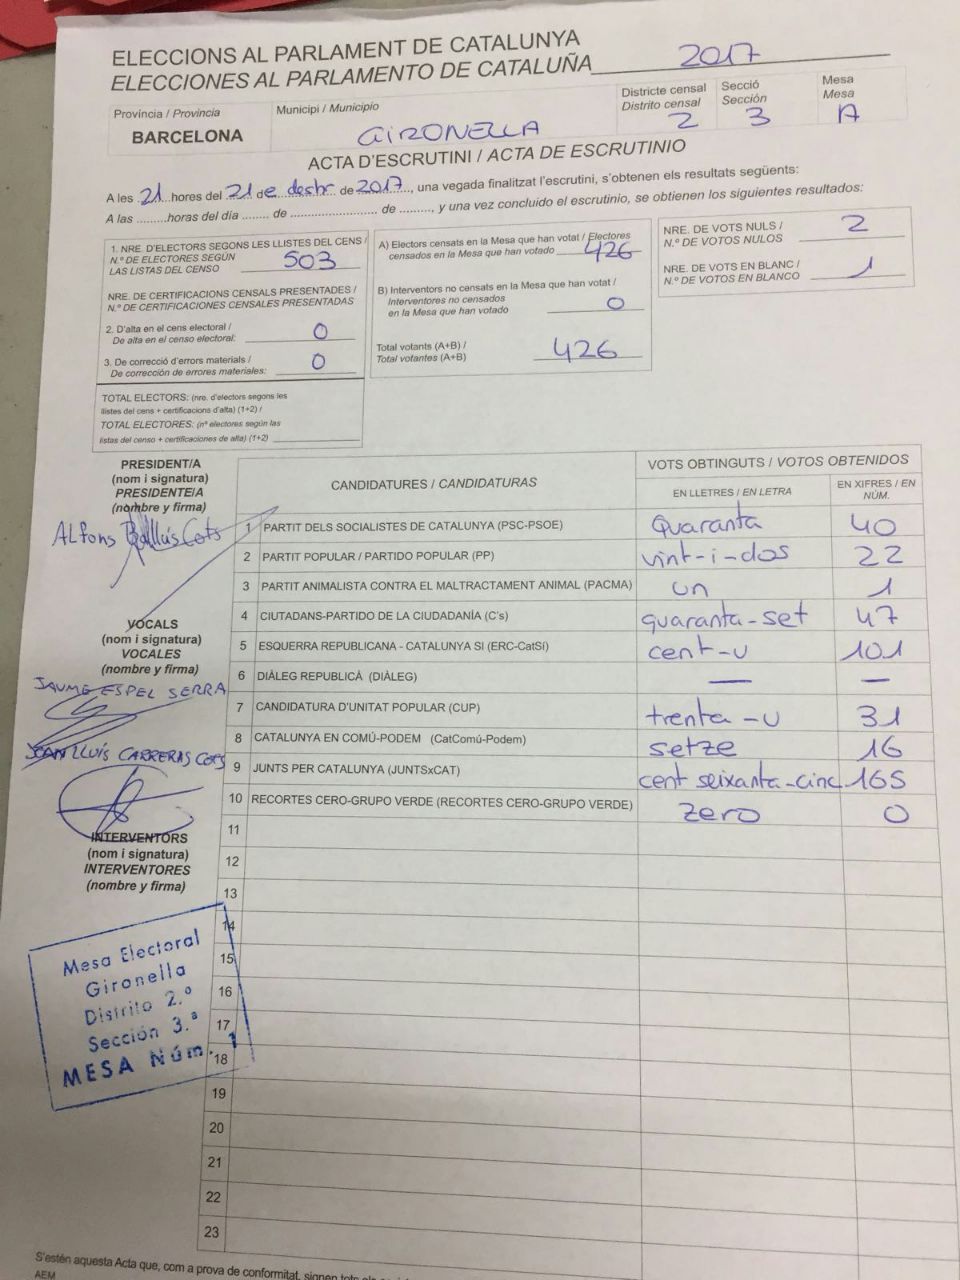 ELECCIONS AL PARLAMENT DE CATALUNYA
ELECCIONES AL PARLAMENTO DE CATALUÑA 2017
Província / Provincia
BARCELONA
Municipi / Municipio
GIRONELLA
Districte censal
Distrito censal
2
Secció
Sección
3
Mesa
Mesa
A
ACTA D'ESCRUTINI / ACTA DE ESCRUTINIO
A les 21 hores del 21 de desbr de 2017, una vegada finalitzat l'escrutini, s'obtenen els resultats següents:
A las .........horas del día ........ de ......................... de ........., y una vez concluido el escrutinio, se obtienen los siguientes resultados:
1. NRE. D'ELECTORS SEGONS LES LLISTES DEL CENS /
N.º DE ELECTORES SEGÚN
LAS LISTAS DEL CENSO 503
NRE. DE CERTIFICACIONS CENSALS PRESENTADES /
N.º DE CERTIFICACIONES CENSALES PRESENTADAS
2. D'alta en el cens electoral /
De alta en el censo electoral: 0
3. De correcció d'errors materials /
De corrección de errores materiales: 0
TOTAL ELECTORS: (nre. d'electors segons les
llistes del cens + certificacions d'alta) (1+2) /
TOTAL ELECTORES: (nº electores según las
listas del censo + certificaciones de alta) (1+2)
A) Electors censats en la Mesa que han votat / Electores
censados en la Mesa que han votado 426
B) Interventors no censats en la Mesa que han votat /
Interventores no censados
en la Mesa que han votado 0
Total votants (A+B) /
Total votantes (A+B) 426
NRE. DE VOTS NULS /
N.º DE VOTOS NULOS 2
NRE. DE VOTS EN BLANC /
N.º DE VOTOS EN BLANCO 1
PRESIDENT/A
(nom i signatura)
PRESIDENTE/A
(nombre y firma)
Alfons Ballús Cots
VOCALS
(nom i signatura)
VOCALES
(nombre y firma)
JAUME ESPEL SERRA
JOAN LLUÍS CARRERAS COTS
INTERVENTORS
(nom i signatura)
INTERVENTORES
(nombre y firma)
Mesa Electoral
Gironella
Distrito 2.º
Sección 3.ª
MESA Núm. 1
CANDIDATURES / CANDIDATURAS
VOTS OBTINGUTS / VOTOS OBTENIDOS
EN LLETRES / EN LETRA
EN XIFRES / EN NÚM.
1 PARTIT DELS SOCIALISTES DE CATALUNYA (PSC-PSOE) Quaranta 40
2 PARTIT POPULAR / PARTIDO POPULAR (PP) vint-i-dos 22
3 PARTIT ANIMALISTA CONTRA EL MALTRACTAMENT ANIMAL (PACMA) un 1
4 CIUTADANS-PARTIDO DE LA CIUDADANÍA (C's) quaranta-set 47
5 ESQUERRA REPUBLICANA - CATALUNYA SI (ERC-CatSí) cent-u 101
6 DIÀLEG REPUBLICÀ (DIÀLEG) — —
7 CANDIDATURA D'UNITAT POPULAR (CUP) trenta-u 31
8 CATALUNYA EN COMÚ-PODEM (CatComú-Podem) setze 16
9 JUNTS PER CATALUNYA (JUNTSxCAT) cent seixanta-cinc 165
10 RECORTES CERO-GRUPO VERDE (RECORTES CERO-GRUPO VERDE) zero 0
11
12
13
14
15
16
17
18
19
20
21
22
23
S'estén aquesta Acta que, com a prova de conformitat, signen tots els
AEM